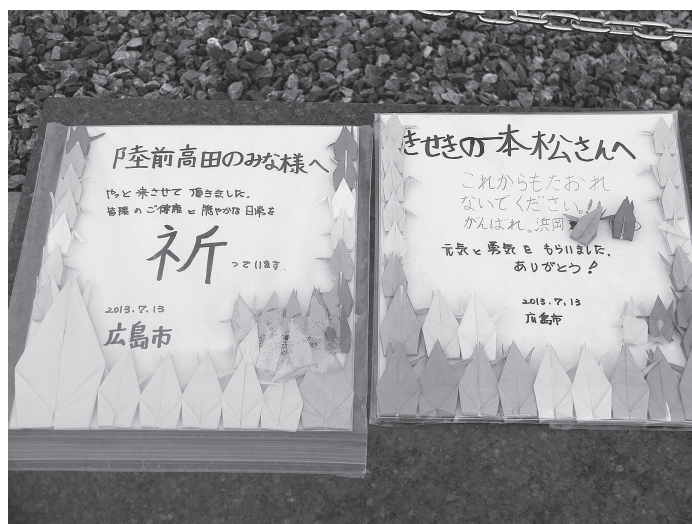 陸前高田のみな様へ
やっと来させて頂きました。
皆様のご健康と穏やかな日常を
祈っています。
2013.7.13
広島市
きせきの一本松さんへ
これからもたおれ
ないでください。!!
がんばれ。浜岡
元気と勇気をもらいました。
ありがとう!
2013.7.13
広島市